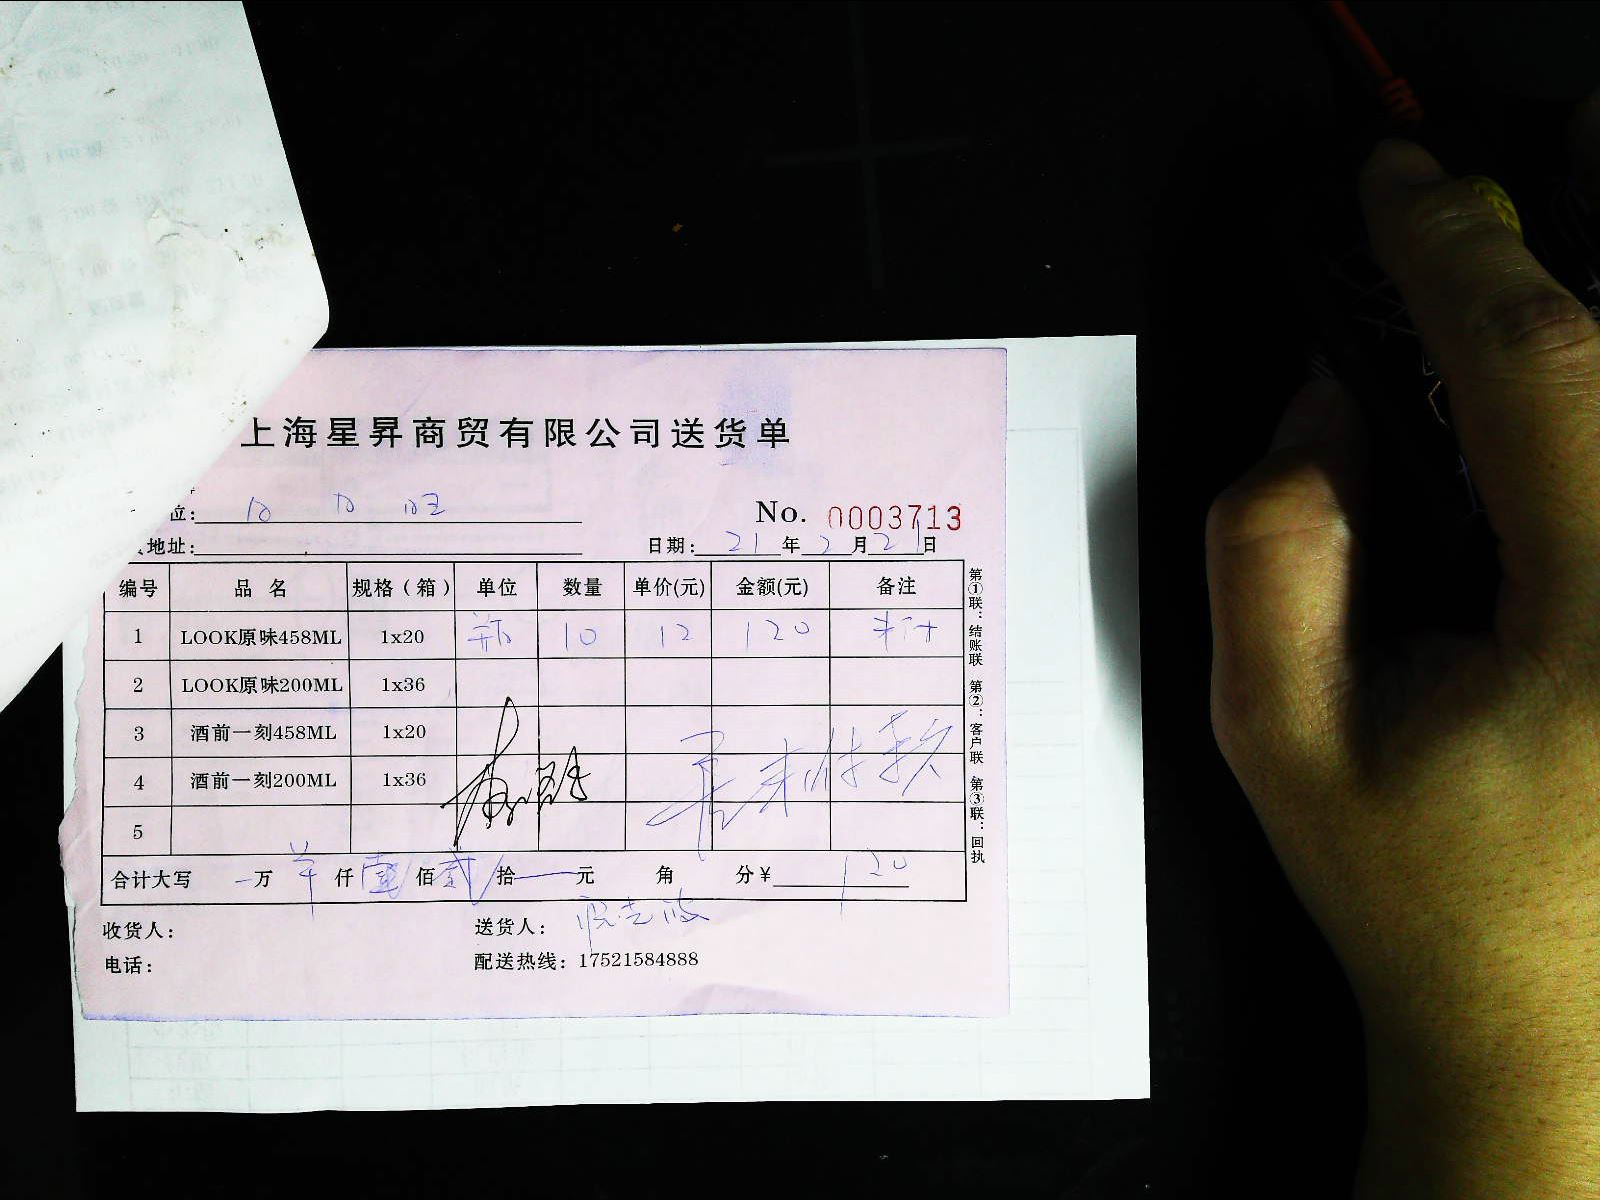 上海星昇商贸有限公司送货单
位: 日日旺 No. 0003713
地址: 日期: 21 年 2 月 21 日
编号 品名 规格（箱） 单位 数量 单价(元) 金额(元) 备注
1 LOOK原味458ML 1x20 瓶 10 12 120
2 LOOK原味200ML 1x36
3 酒前一刻458ML 1x20
4 酒前一刻200ML 1x36
5
合计大写 万 仟 壹 佰 贰 拾 元 角 分￥ 120
收货人: 送货人:
电话: 配送热线: 17521584888
第①联: 结账联 第②: 客户联 第③联: 回执